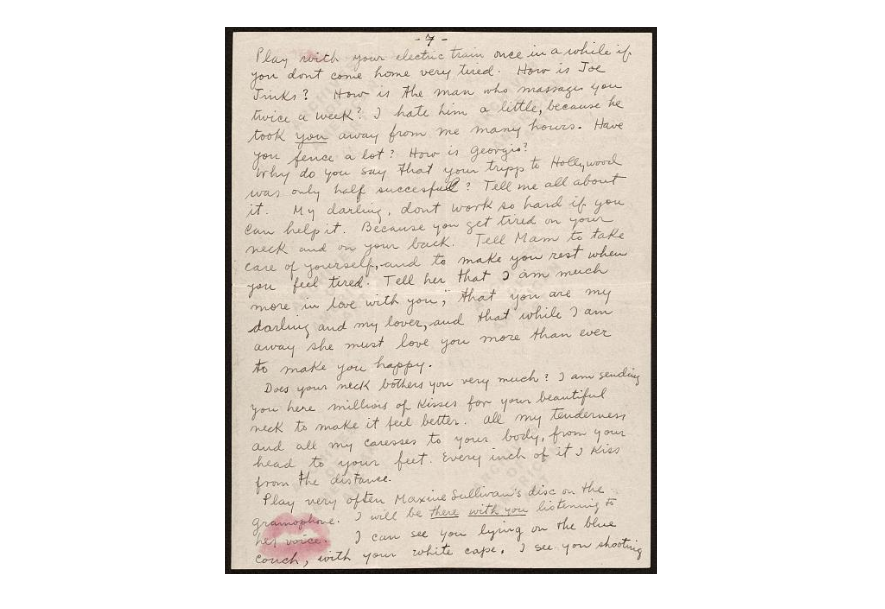 - 7 -
Play with your electric train once in a while if
you dont come home very tired. How is Joe
Jinks? How is the man who massages you
twice a week? I hate him a little, because he
took you away from me many hours. Have
you fence a lot? How is Georgio?
Why do you say that your tripp to Hollywood
was only half succesfull? Tell me all about
it. My darling, dont work so hard if you
can help it. Because you get tired on your
neck and on your back. Tell Mam to take
care of yourself, and to make you rest when
you feel tired. Tell her that I am much
more in love with you, that you are my
darling and my lover, and that while I am
away she must love you more than ever
to make you happy.
Does your neck bothers you very much? I am sending
you here millions of kisses for your beautiful
neck to make it feel better. All my tenderness
and all my caresses to your body, from your
head to your feet. Every inch of it I kiss
from the distance.
Play very often Maxine Sullivan's disc on the
gramophone. I will be there with you listening to
her voice. I can see you lying on the blue
couch, with your white cape. I see you shooting